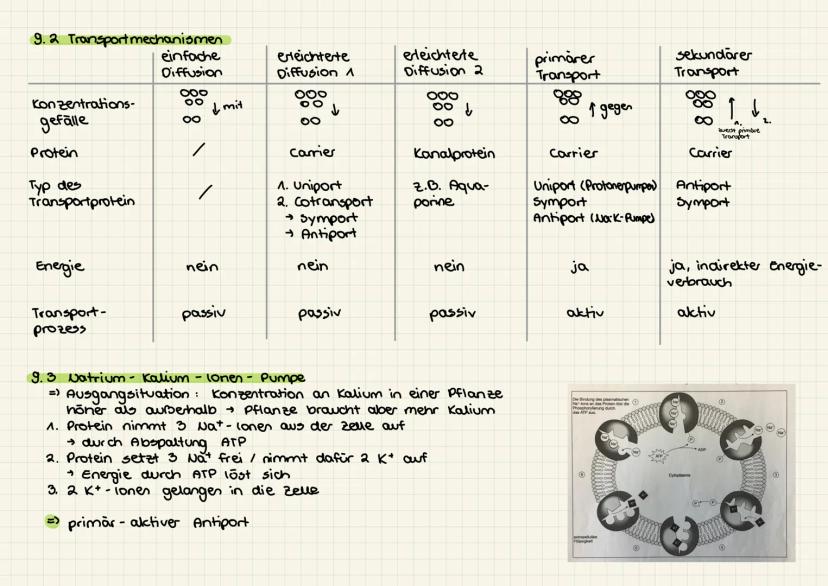 9.2 Transportmechanismen
einfache Diffusion
erleichterte Diffusion 1
erleichterte Diffusion 2
primärer Transport
sekundärer Transport
Konzentrations-gefälle
mit
gegen
1. 2.
zuerst primäre Transport
Protein / Carrier Kanalprotein Carrier Carrier
Typ des Transportprotein
/
1. Uniport
2. Cotransport
→ Symport
→ Antiport
z.B. Aqua-
porine
Uniport (Protonenpumpen)
Symport
Antiport (Na-K-Pumpe)
Antiport
Symport
Energie nein nein nein ja ja, indirekter Energie-
verbrauch
Transport-prozess passiv passiv passiv aktiv aktiv
9.3 Natrium-Kalium-Ionen-Pumpe
=> Ausgangsituation: Konzentration an Kalium in einer Pflanze
höher als außerhalb → Pflanze braucht aber mehr Kalium
1. Protein nimmt 3 Na⁺-Ionen aus der Zelle auf
→ durch Abspaltung ATP
2. Protein setzt 3 Na⁺ frei / nimmt dafür 2 K⁺ auf
→ Energie durch ATP löst sich
3. 2 K⁺-Ionen gelangen in die Zelle
=> primär-aktiver Antiport
Die Bindung des plasmatischen
Na⁺-Ions an das Protein löst die
Phosphorylierung durch
das ATP aus.
ATP
ADP
Cytoplasma
extrazelluläre
Flüssigkeit